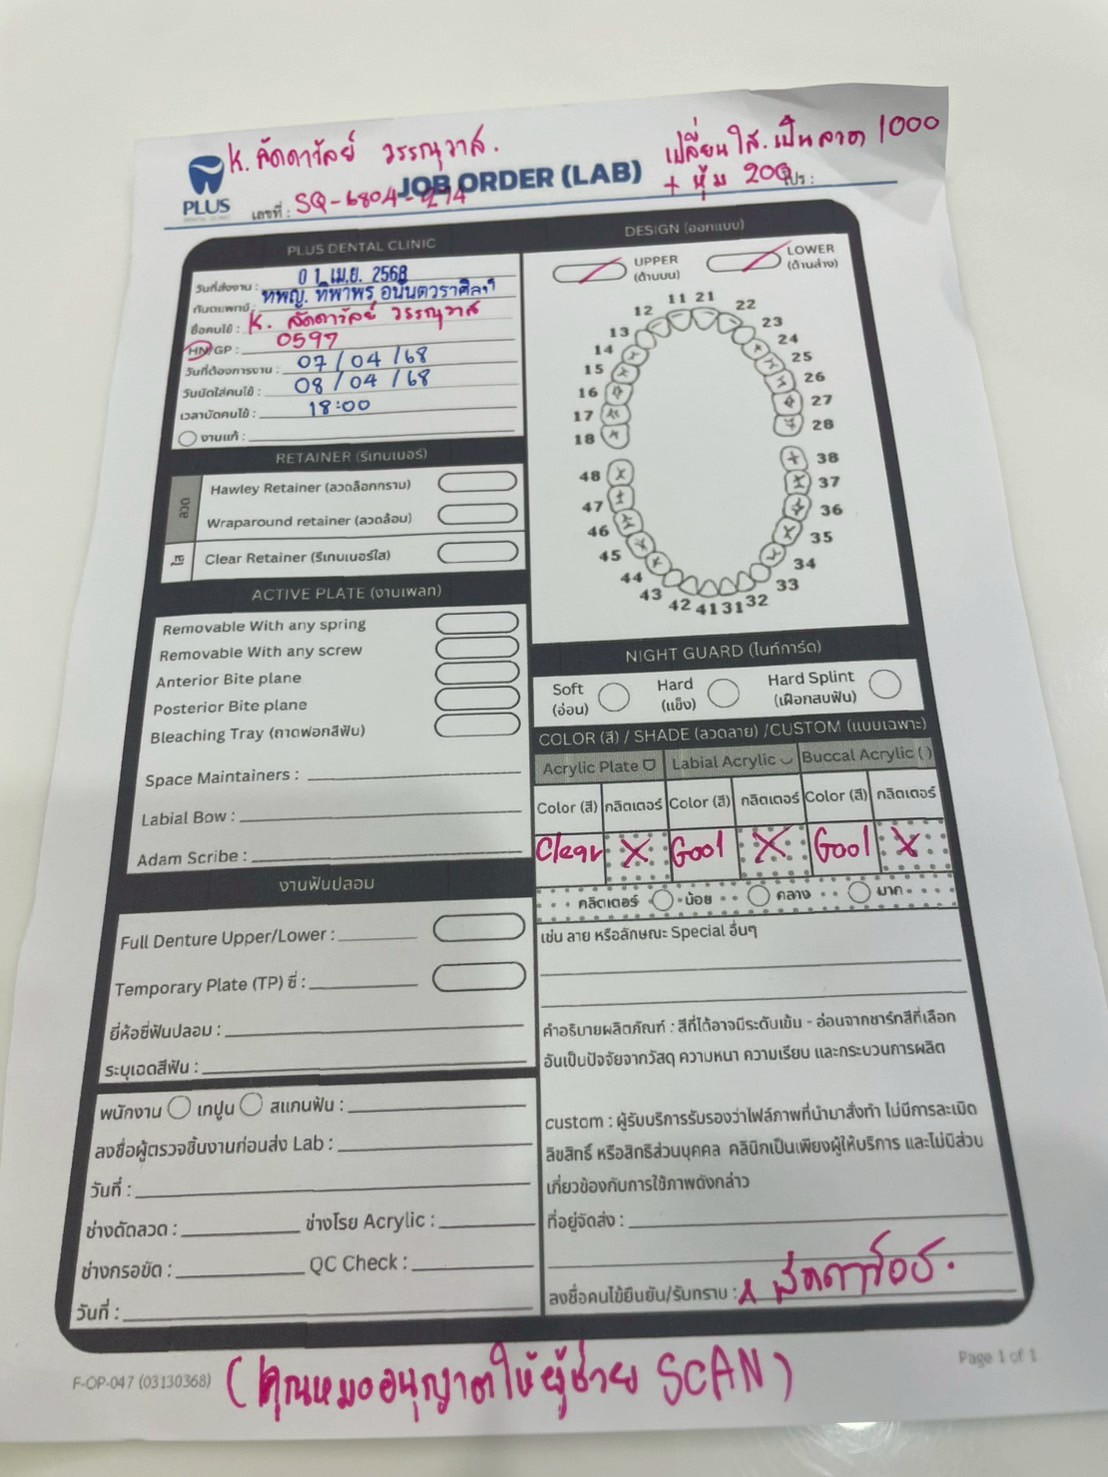 K. ลัดดาวัลย์ วรรณวาส.
เปลี่ยนใส. เป็นลวด 1000
+ หุ้ม 200
PLUS
DENTAL CLINIC
JOB ORDER (LAB)
เลขที่ : SQ-6804-274
โปร :
PLUS DENTAL CLINIC
วันที่ส่งงาน : 01 เม.ย. 2568
ทันตแพทย์ : ทพญ. ทิพาพร
ชื่อคนไข้ : K. ลัดดาวัลย์ วรรณวาส
HN/GP : 0597
วันที่ต้องการงาน : 07/04/68
วันนัดใส่คนไข้ : 08/04/68
เวลานัดคนไข้ : 18:00
งานแก้ :
RETAINER (รีเทนเนอร์)
ลวด
Hawley Retainer (ลวดล็อกกราม)
Wraparound retainer (ลวดล้อม)
ใส
Clear Retainer (รีเทนเนอร์ใส)
ACTIVE PLATE (งานเพลท)
Removable With any spring
Removable With any screw
Anterior Bite plane
Posterior Bite plane
Bleaching Tray (ถาดฟอกสีฟัน)
Space Maintainers :
Labial Bow :
Adam Scribe :
งานฟันปลอม
Full Denture Upper/Lower :
Temporary Plate (TP) ซี่ :
ยี่ห้อซี่ฟันปลอม :
ระบุเฉดสีฟัน :
พนักงาน เทปูน สแกนฟัน :
ลงชื่อผู้ตรวจชิ้นงานก่อนส่ง Lab :
วันที่ :
ช่างดัดลวด : ช่างโรย Acrylic :
ช่างกรอขัด : QC Check :
วันที่ :
DESIGN (ออกแบบ)
UPPER
(ด้านบน)
LOWER
(ด้านล่าง)
11 21
12 22
13 23
14 24
15 25
16 26
17 27
18 28
48 38
47 37
46 36
45 35
44 34
43 33
42 41 31 32
NIGHT GUARD (ไนท์การ์ด)
Soft
(อ่อน)
Hard
(แข็ง)
Hard Splint
(เฝือกสบฟัน)
COLOR (สี) / SHADE (ลวดลาย) /CUSTOM (แบบเฉพาะ)
Acrylic Plate Labial Acrylic Buccal Acrylic ( )
Color (สี) กลิตเตอร์ Color (สี) กลิตเตอร์ Color (สี) กลิตเตอร์
Clear X Gool X Gool X
กลิตเตอร์ น้อย กลาง มาก
เช่น ลาย หรือลักษณะ Special อื่นๆ
คำอธิบายผลิตภัณฑ์ : สีที่ได้อาจมีระดับเข้ม - อ่อนจากชาร์ทสีที่เลือก
อันเป็นปัจจัยจากวัสดุ ความหนา ความเรียบ และกระบวนการผลิต
custom : ผู้รับบริการรับรองว่าไฟล์ภาพที่นำมาสั่งทำ ไม่มีการละเมิด
ลิขสิทธิ์ หรือสิทธิส่วนบุคคล คลินิกเป็นเพียงผู้ให้บริการ และไม่มีส่วน
เกี่ยวข้องกับการใช้ภาพดังกล่าว
ที่อยู่จัดส่ง :
ลงชื่อคนไข้ยืนยัน/รับทราบ : ลัดดาวัลย์.
F-OP-047 (03130368)
Page 1 of 1
(คุณหมออนุญาตให้ผู้ช่วย SCAN)